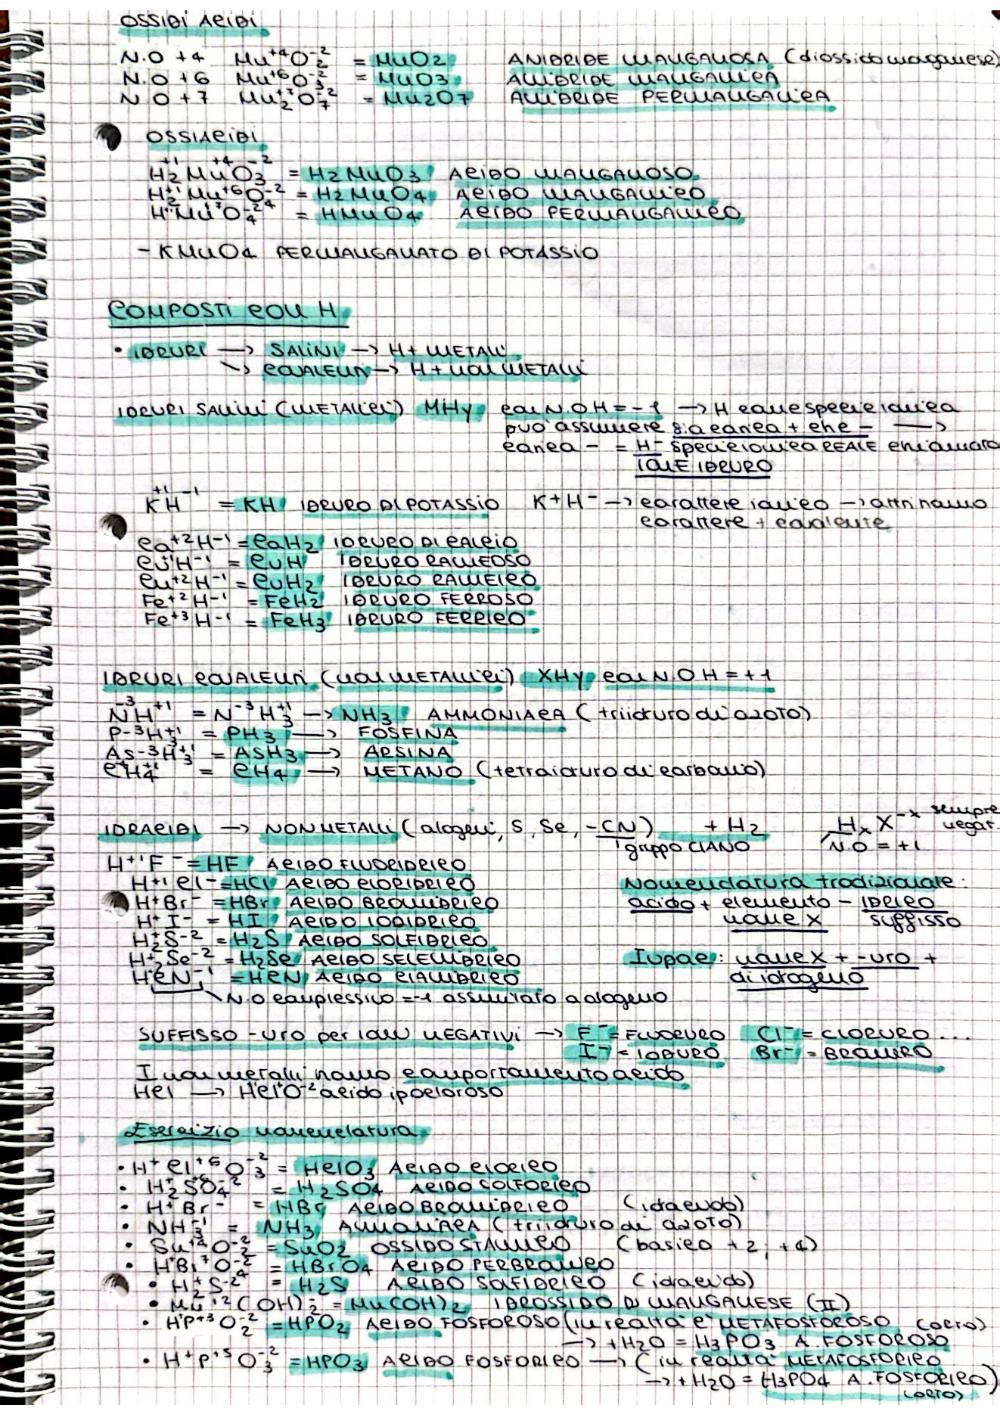 OSSIDI ACIDI
N.O +4 Mn⁺⁴O₂⁻² = MnO2 ANIDRIDE MANGANOSA (diossido manganese)
N.O +6 Mn⁺⁶O₃⁻² = MnO3 ANIDRIDE MANGANICA
N O +7 Mn₂⁺⁷O₇⁻² = Mn2O7 ANIDRIDE PERMANGANICA
OSSIACIDI
H₂⁺¹Mn⁺⁴O₃⁻² = H2MnO3 ACIDO MANGANOSO
H₂⁺¹Mn⁺⁶O₄⁻² = H2MnO4 ACIDO MANGANICO
H⁺Mn⁺⁷O₄⁻² = HMnO4 ACIDO PERMANGANICO
- KMnO4 PERMANGANATO DI POTASSIO
COMPOSTI CON H
• IDRURI → SALINI → H + METALLI
↘ COVALENTI → H + NON METALLI
IDRURI SALINI (METALLICI) MHy con N.O H = -1 → H come specie ionica
può assumere sia carica + che - →
carica - = H⁻ specie ionica REALE chiamata
IONE IDRURO
K⁺¹H⁻¹ = KH IDRURO DI POTASSIO K+H⁻ → carattere ionico → altri hanno
carattere + covalente
Ca⁺²H⁻¹ = CaH₂ IDRURO DI CALCIO
Cu⁺H⁻¹ = CuH IDRURO RAMEOSO
Cu⁺²H⁻¹ = CuH₂ IDRURO RAMEICO
Fe⁺²H⁻¹ = FeH₂ IDRURO FERROSO
Fe⁺³H⁻¹ = FeH₃ IDRURO FERRICO
IDRURI COVALENTI (NON METALLICI) XHy con N.O H = +1
N⁻³H⁺¹ = N⁻³H₃⁺¹ → NH₃ AMMONIACA (triidruro di azoto)
P⁻³H₃⁺¹ = PH₃ → FOSFINA
As⁻³H₃⁺¹ = ASH₃ → ARSINA
CH₄⁺¹ = CH₄ → METANO (tetraidruro di carbonio)
IDRACIDI → NON METALLI (alogeni, S, Se, -CN) + H₂ HₓX⁻ˣ sempre negat.
gruppo CIANO N.O = +1
H⁺¹F⁻ = HF ACIDO FLUORIDRICO
H⁺¹Cl⁻ = HCl ACIDO CLORIDRICO Nomenclatura tradizionale:
H⁺Br⁻ = HBr ACIDO BROMIDRICO acido + elemento - IDRICO
H⁺I⁻ = HI ACIDO IODIDRICO nome X suffisso
H₂⁺S⁻² = H₂S ACIDO SOLFIDRICO
H₂⁺Se⁻² = H₂Se ACIDO SELENIDRICO Iupac: nome X + -uro +
H⁺CN⁻¹ = HCN ACIDO CIANIDRICO di idrogeno
N.O complessivo = -1 assimilato a alogeno
SUFFISSO -uro per ioni NEGATIVI → F⁻ = FLUORURO Cl⁻ = CLORURO...
I⁻ = IODURO Br⁻ = BROMURO
I non metalli hanno comportamento acido
HCl → HClO⁻² acido ipocloroso
Esercizio nomenclatura
• H⁺Cl⁺⁵O₃⁻² = HClO₃ ACIDO CLORICO
• H₂⁺S⁺⁶O₄⁻² = H₂SO₄ ACIDO SOLFORICO
• H⁺Br⁻ = HBr ACIDO BROMIDRICO (idracido)
• NH₃⁺¹ = NH₃ AMMONIACA (triidruro di azoto)
• Sn⁺⁴O₂⁻² = SnO₂ OSSIDO STANNICO (basico +2, +4)
• H⁺Br⁺⁷O₄⁻² = HBrO₄ ACIDO PERBROMICO
• H₂⁺S⁻² = H₂S ACIDO SOLFIDRICO (idracido)
• Mn⁺²(OH)₂⁻ = Mn(OH)₂ IDROSSIDO DI MANGANESE (II)
• H⁺P⁺³O₂⁻² = HPO₂ ACIDO FOSFOROSO (in realtà è METAFOSFOROSO (orto)
→ +H₂O = H₃PO₃ A. FOSFOROSO
• H⁺P⁺⁵O₃⁻² = HPO₃ ACIDO FOSFORICO → (in realtà METAFOSFORICO
→ +H₂O = H₃PO4 A. FOSFORICO)
(orto)